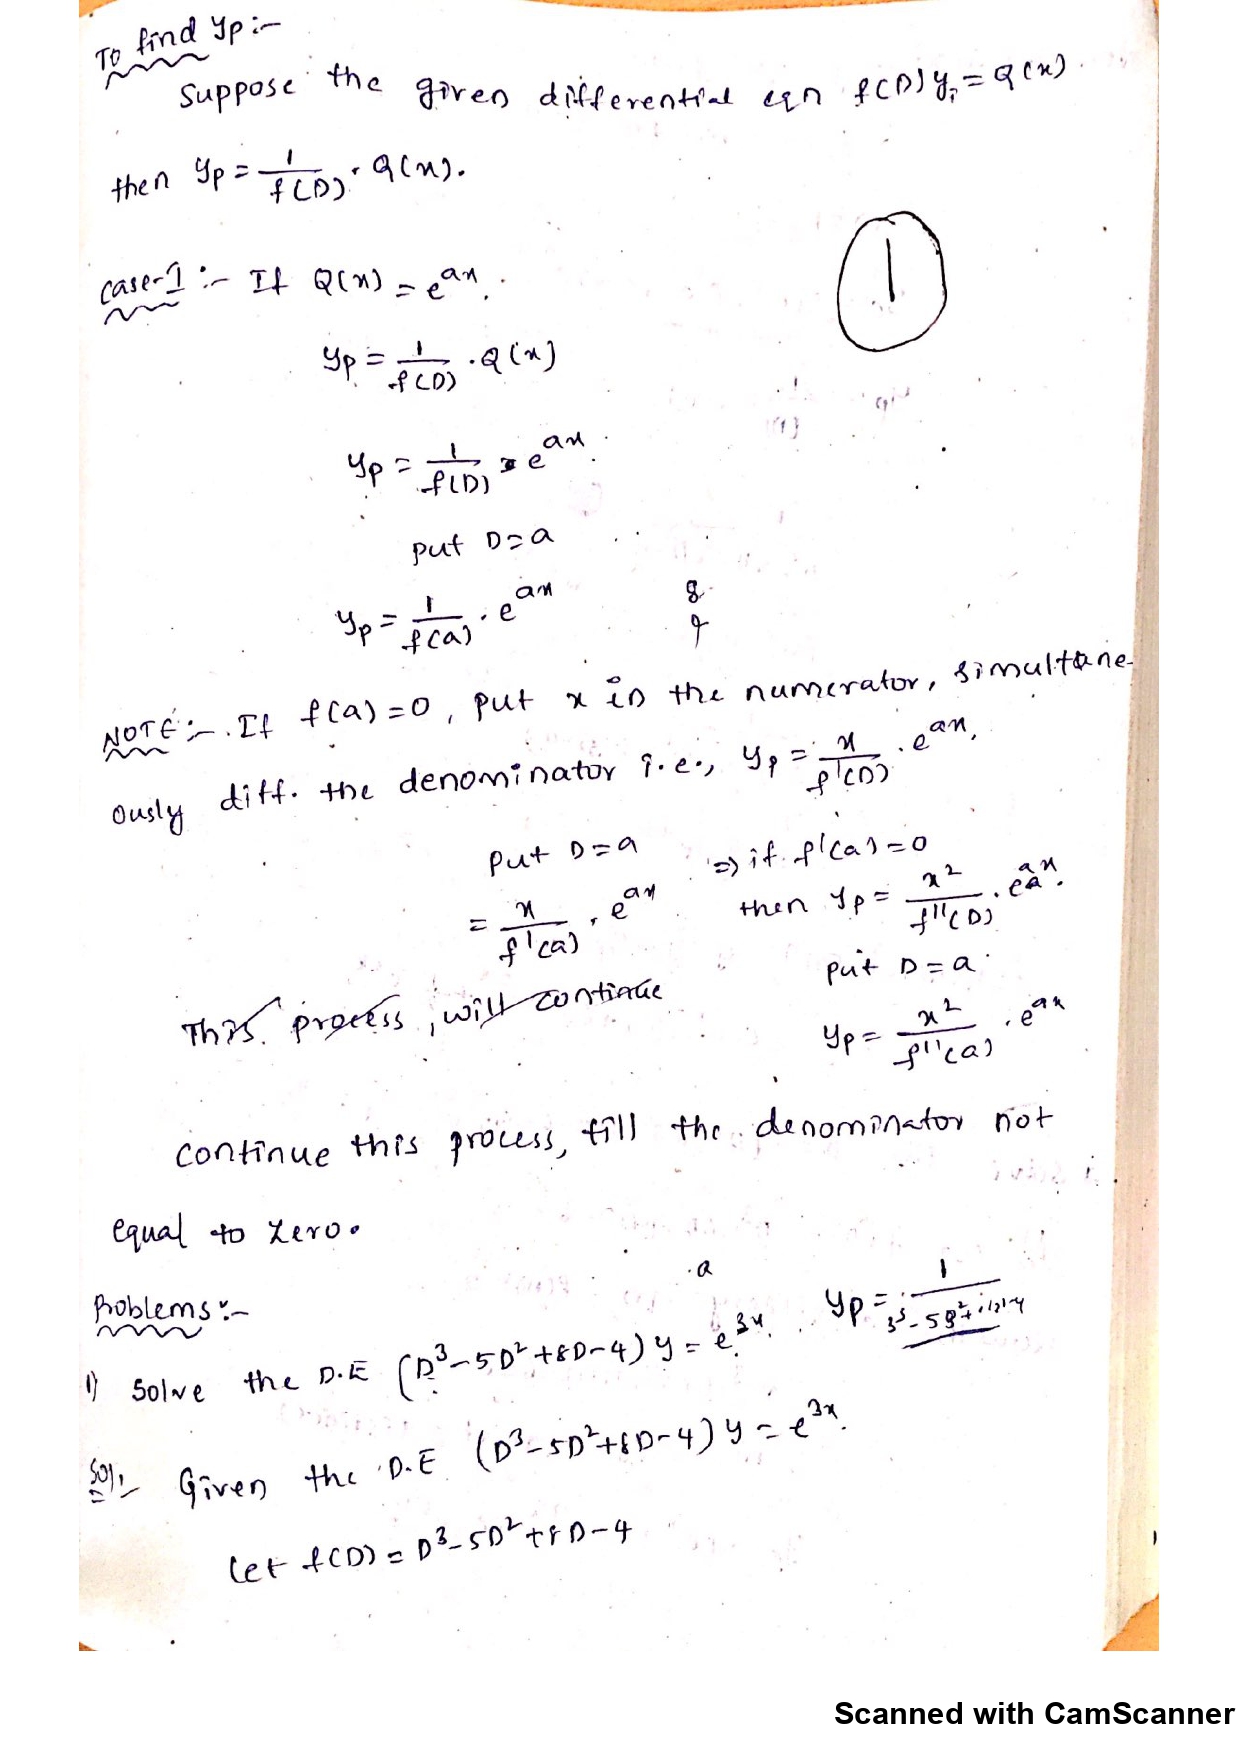 To find yp :-
Suppose the given differential eqn f(D)y, = Q(x)
then yp = 1/f(D) · Q(x).
Case-I :- If Q(x) = e^ax.
1
yp = 1/f(D) · Q(x)
yp = 1/f(D) e^ax.
put D=a
yp = 1/f(a) · e^ax
NOTE :- If f(a)=0, put x in the numerator, simultane-
ously diff. the denominator i.e., yp = x/f'(D) · e^ax.
Put D=a
= x/f'(a) · e^ax
⇒ if f'(a)=0
then yp = x²/f''(D) · e^ax.
put D=a
yp = x²/f''(a) · e^ax
This process, will continue
continue this process, till the denominator not
equal to zero.
a
Problems :-
yp = 1/
1) Solve the D.E (D³-5D²+8D-4)y = e^3x.
Sol:- Given the D.E (D³-5D²+8D-4)y = e^3x.
Let f(D) = D³-5D²+8D-4
Scanned with CamScanner